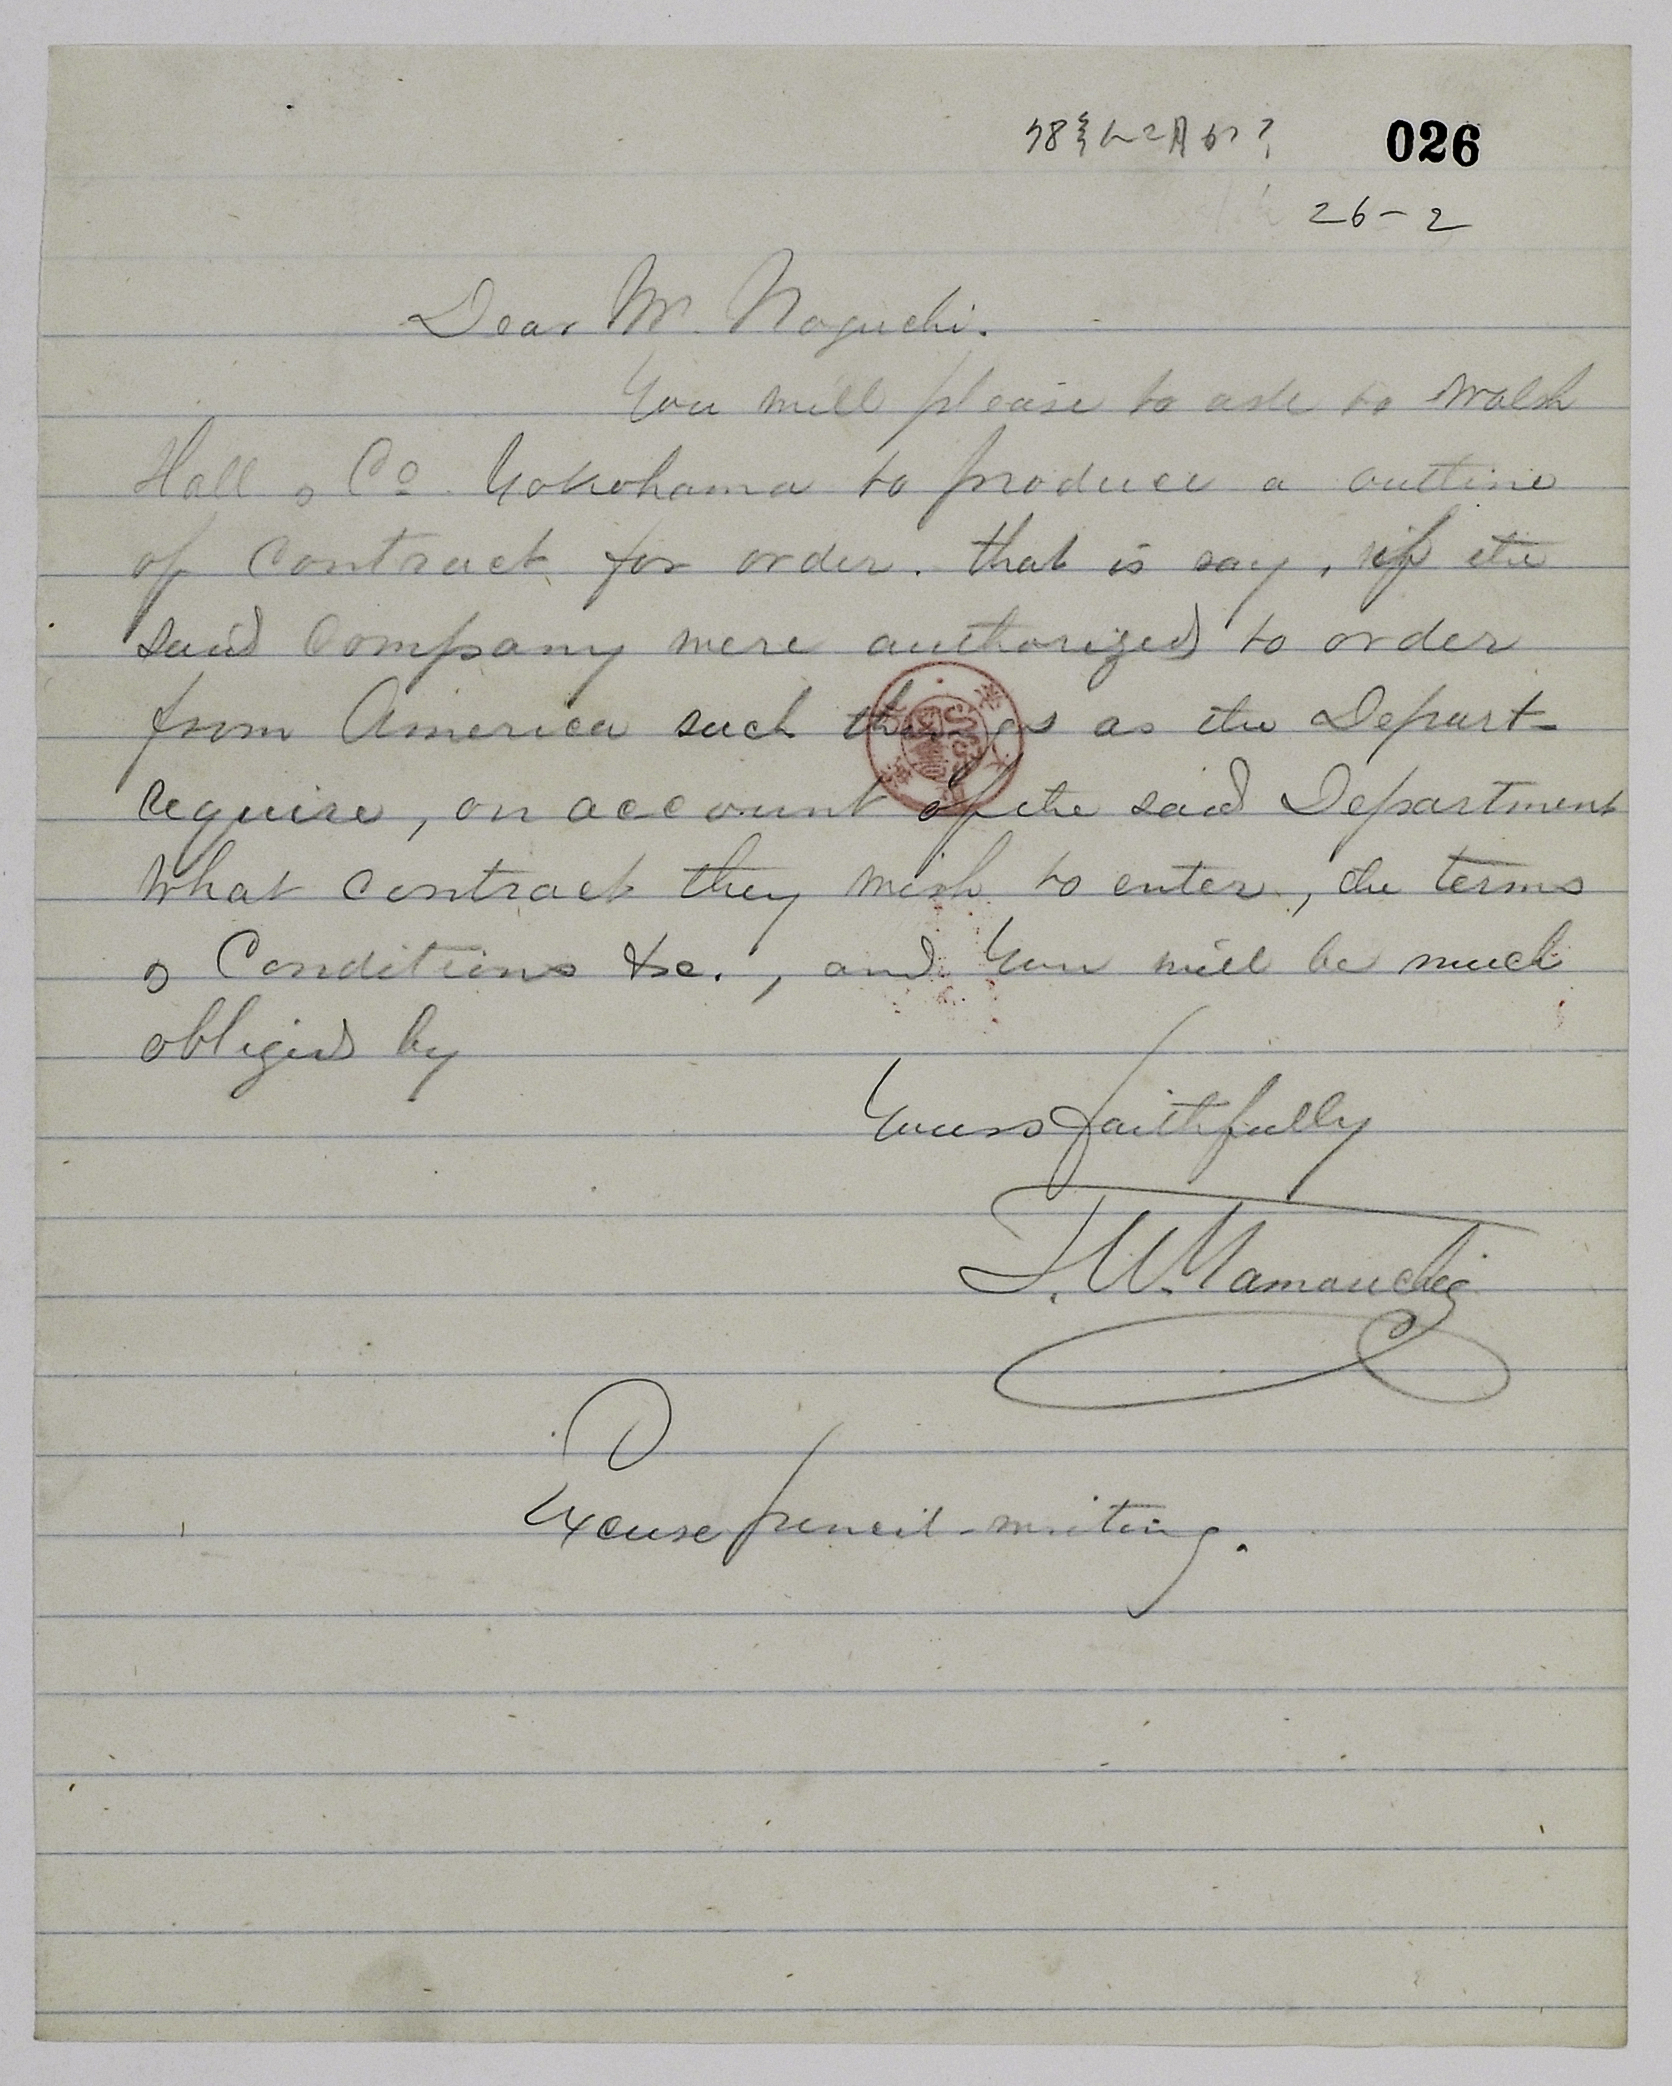 026
26-2
Dear Mr. Noguchi.
You will please to ask to Walsh
Hall & Co. Yokohama to produce a outline
of contract for order. that is say, if the
said Company were authorized to order
from America such things as the Depart-
require, on account of the said Department
What contract they wish to enter, the terms
& Conditions &c., and you will be much
obliged by
Yours faithfully
T. W. Yamanchi
Excuse pencil-writing.